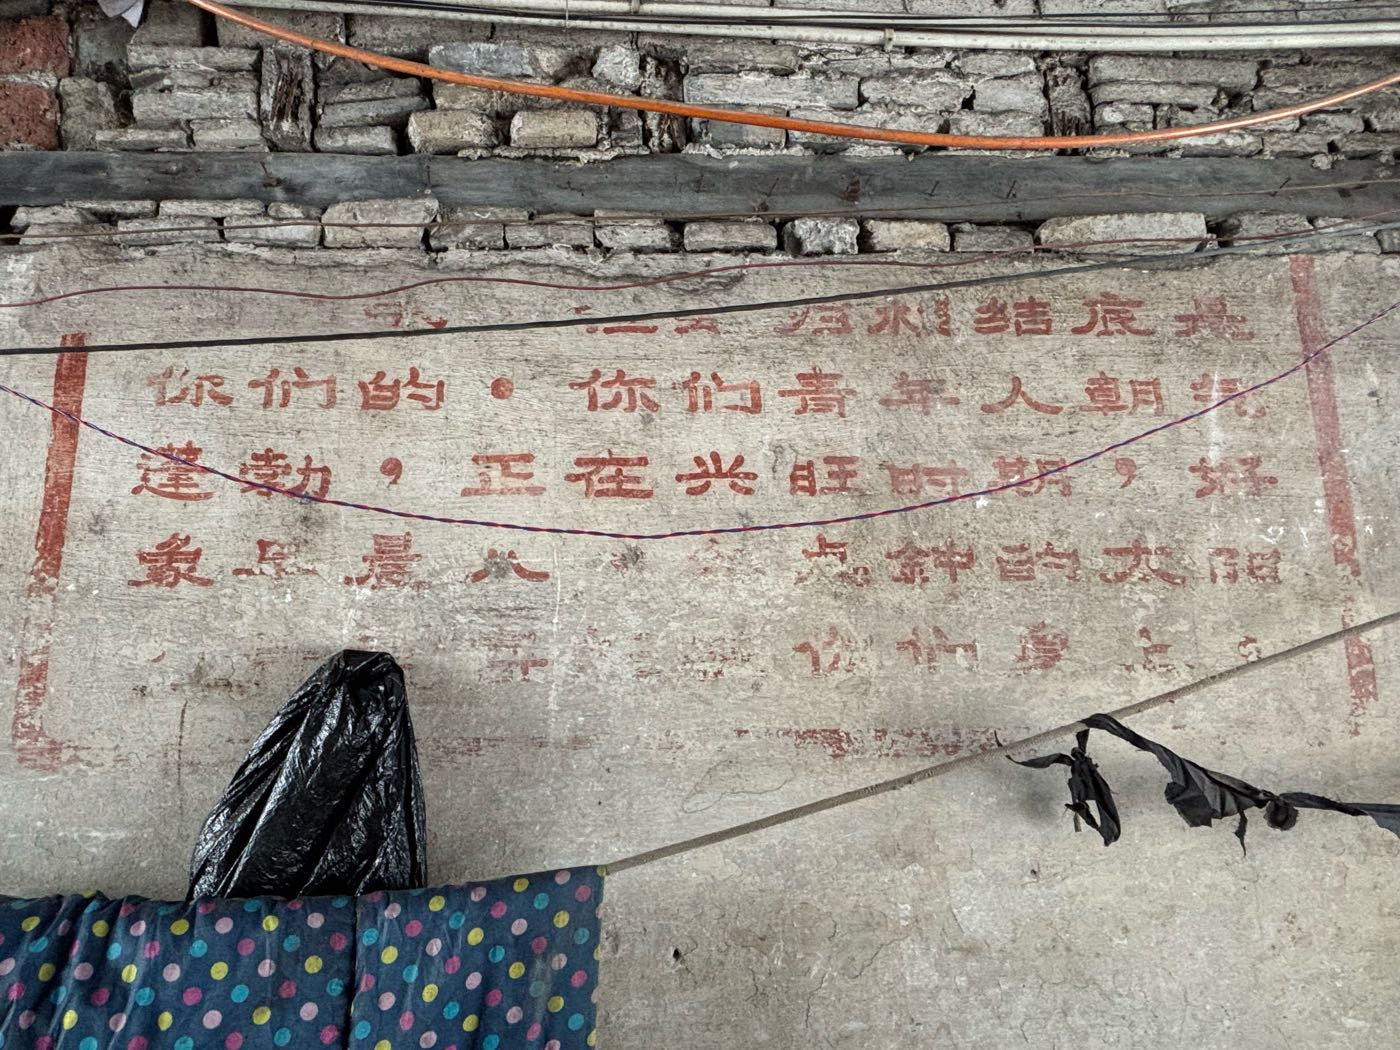 归根结底是
你们的·你们青年人朝气
蓬勃，正在兴旺时期，好
象早晨八 点钟的太阳
你们身上